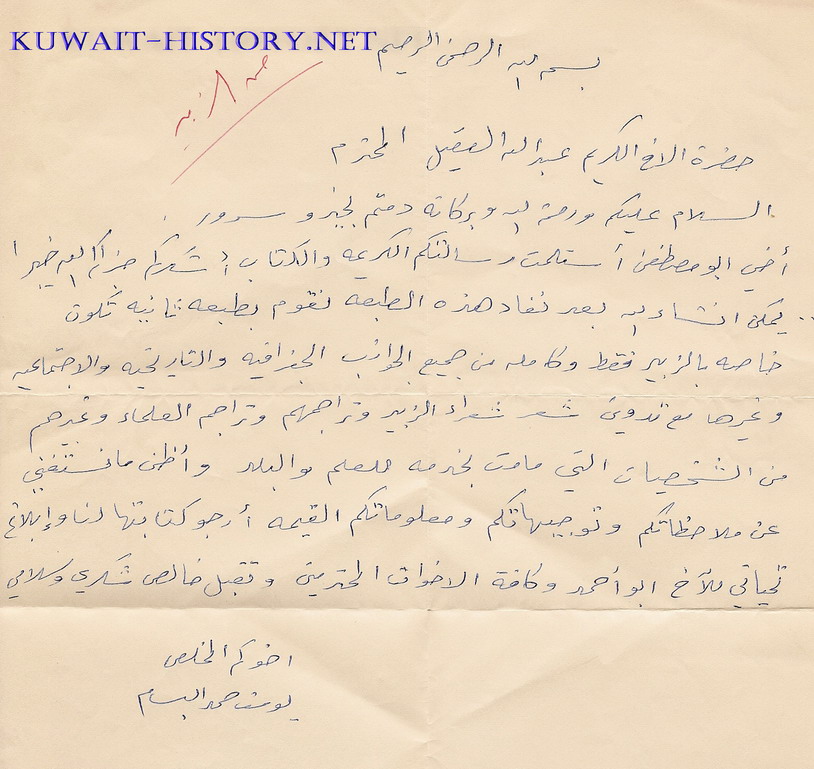 KUWAIT-HISTORY.NET
بسم الله الرحمن الرحيم
حضرة الاخ الكريم عبدالله العقيل المحترم
السلام عليكم ورحمة الله وبركاته دمتم بخير وسرور
أخي ابو مصطفى أستلمت رسالتكم الكريمه والكتاب أشكركم جزاكم الله خيرا
يمكن انشاء الله بعد نفاد هذه الطبعه نقوم بطبعه ثانيه تكون
خاصه بالزبير فقط وكامله من جميع الجوانب الجغرافيه والتاريخيه والاجتماعيه
وغيرها مع تدوين شعر شعراء الزبير وتراجمهم وتراجم العلماء وغيرهم
من الشخصيات التي قامت بخدمه للعلم والبلد وأظن مانستغني
عن ملاحظاتكم وتوجيهاتكم ومعلوماتكم القيمه أرجو كتابتها لنا وإبلاغ
تحياتي للأخ ابو أحمد وكافة الاخوان المحترمين وتقبل خالص شكري وسلامي
اخوكم المخلص
يوسف حمد البسام